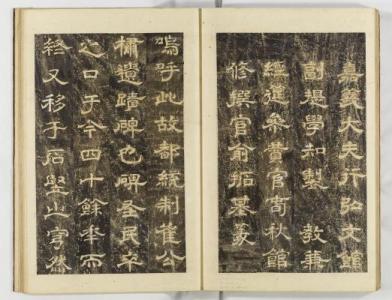 嘉義大夫行弘文館
副提學知製 教兼
經筵參贊官春秋館
修撰官俞拓基篆
嗚乎此故都統制崔公
橚遺蹟碑也碑在民
之口于今四十餘年而
終又移于石堅之穹然